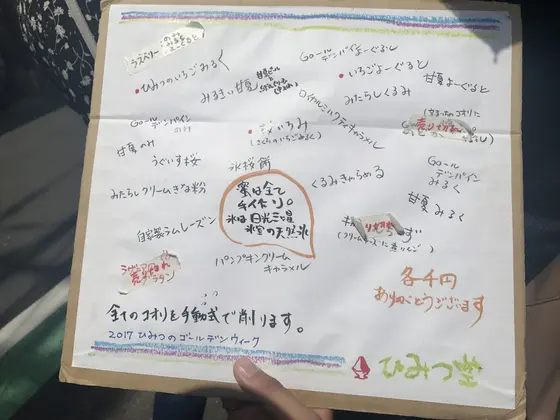 ラズベリーのみ
ひみつのいちごみるく
みるきぃ甘夏
Goールデンパインよーぐると
いちごよーぐると
甘夏よーぐると
ロイヤルミルクティキャラメル
みたらしくるみ
Goールデンパイン
のみ
甘夏のみ
うぐいす桜
氷桜餅
(さくらのいちごみるく)
売り切れ
Goール
デンパイン
みるく
みたらしクリームきな粉
くるみきゃらめる
甘夏みるく
自家製ラムレーズン
蜜は全て
手作り。
氷は日光三ツ星
氷室の天然氷
パンプキンクリーム
キャラメル
売り切れ
各千円
ありがとうございます
全てのコオリを手動式で削ります。
2017 ひみつのゴールデンウィーク
ひみつ堂